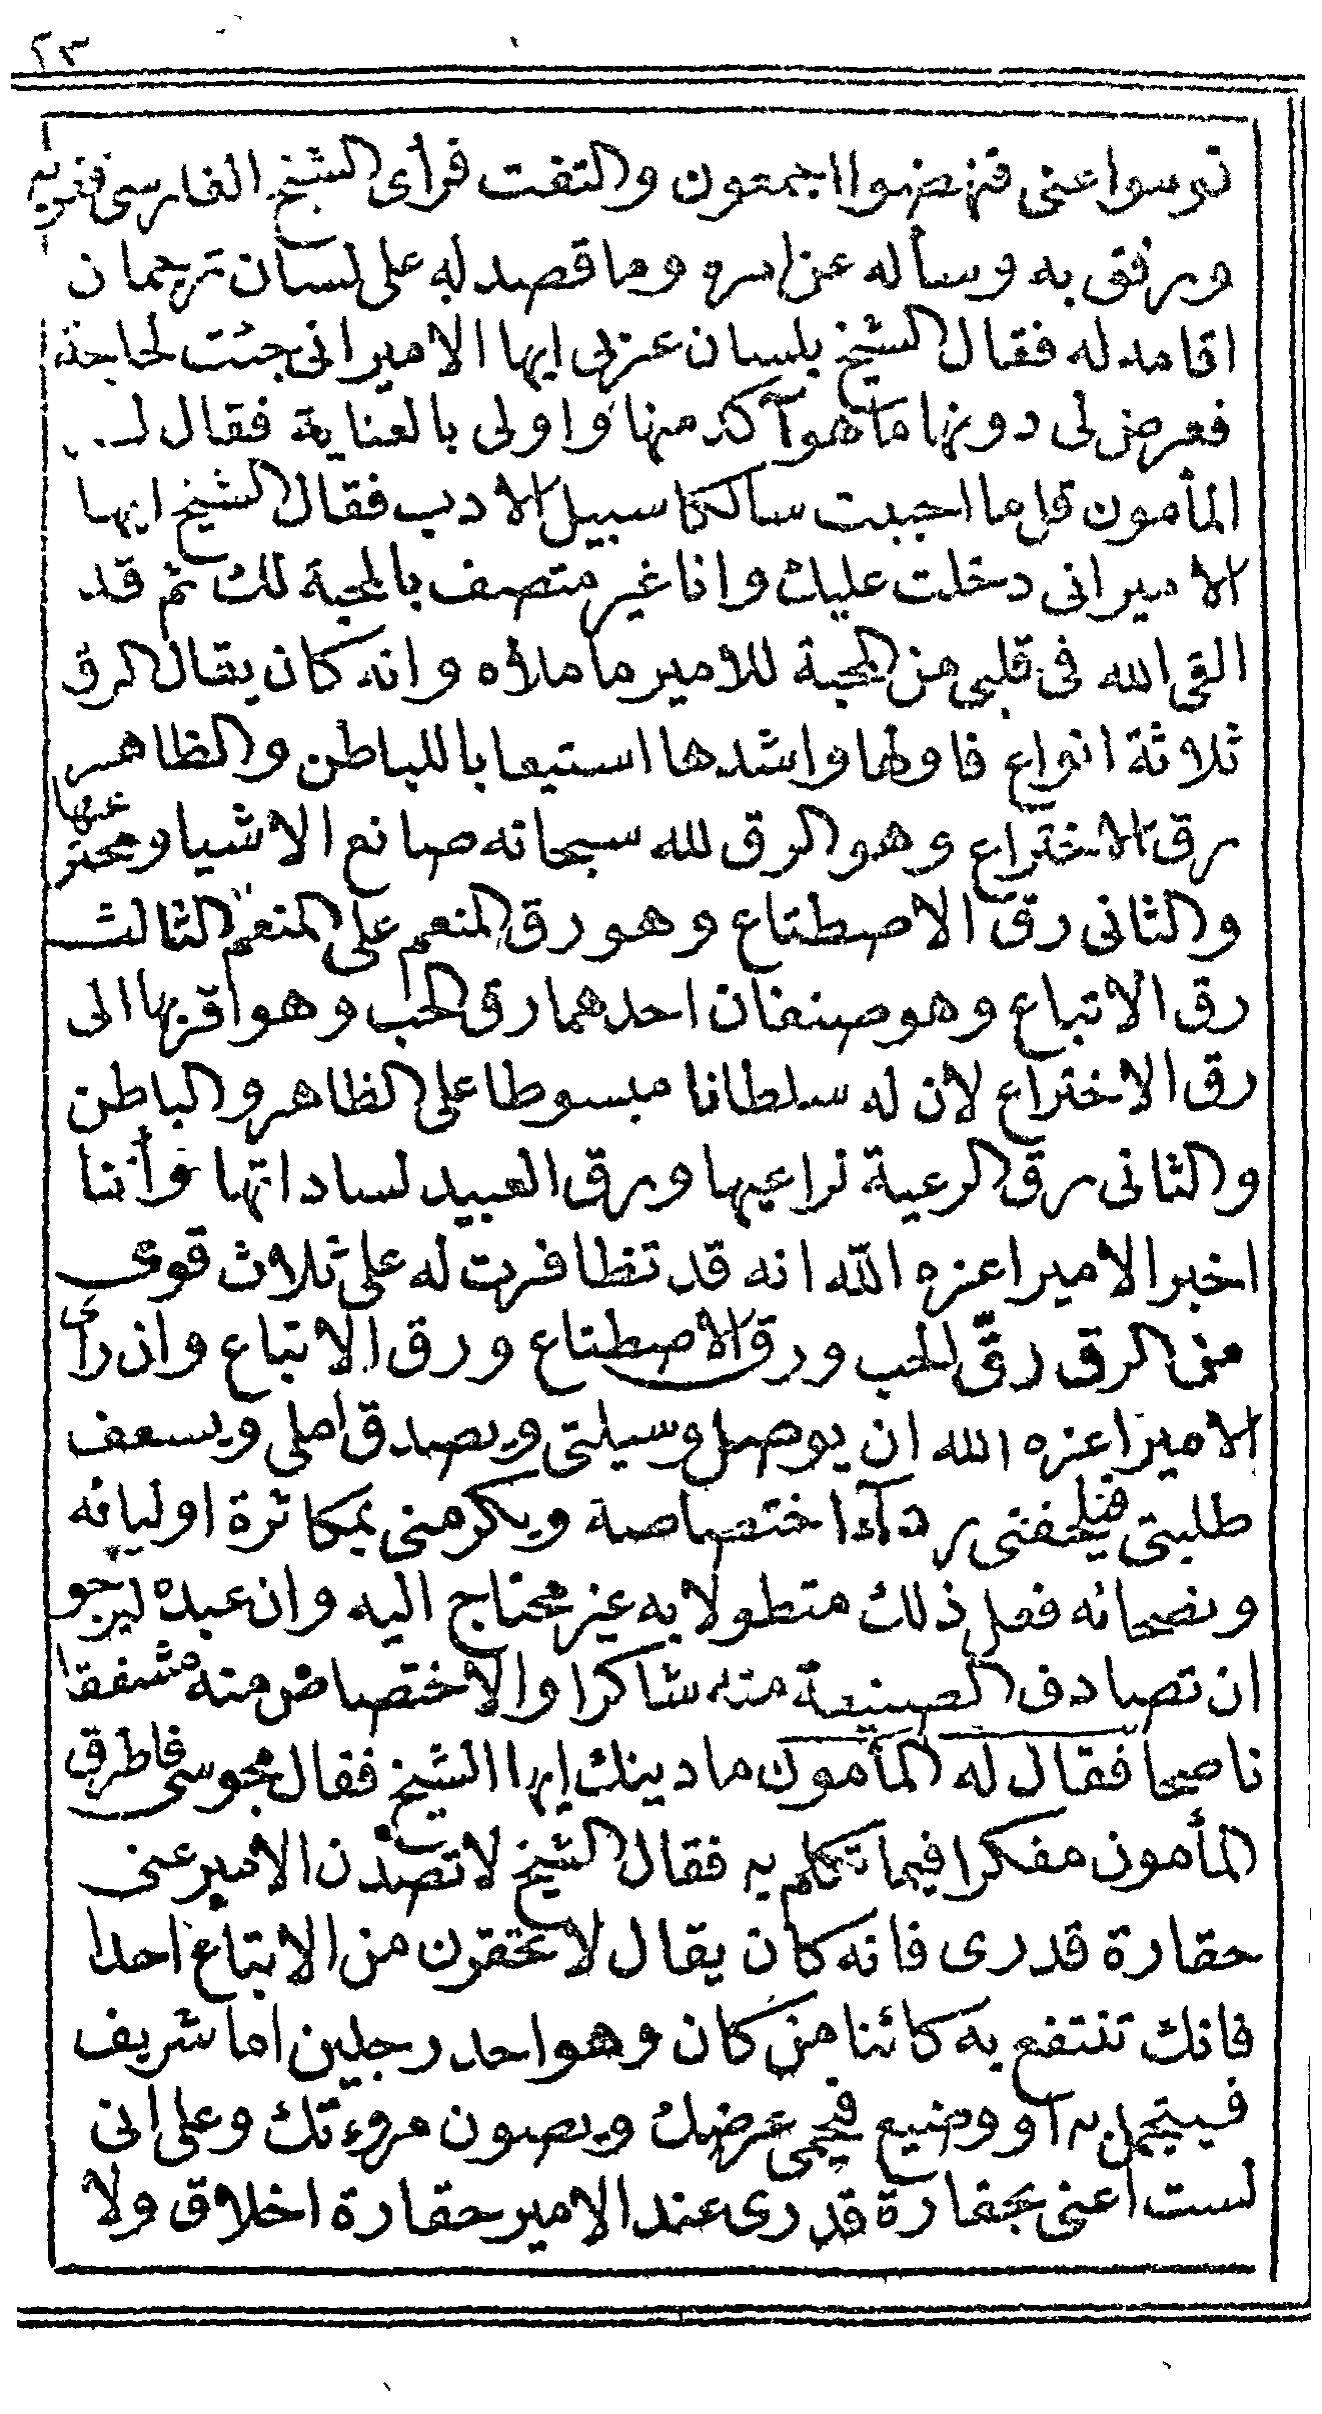 ٢٣
توسوا عنى فنهضوا اجمعون والتفت فرأى الشيخ الفارسى فقربه
ورفق به وسأله عن امره وما قصد له على لسان ترجمان
اقامه له فقال الشيخ بلسان عربى ايها الامير انى جئت لحاجة
فعرض لى دونها ما هو آكد منها واولى بالعناية فقال لـــه
المأمون قل ما احببت سالكا سبيل الادب فقال الشيخ ايها
الامير انى دخلت عليك وانا غير متصف بالمحبة لك ثم قد
القى الله فى قلبى من المحبة للامير ما ملاؤه وانه كان يقال الرق
ثلاثة انواع فاولها واشدها استيعابا للباطن والظاهر
رق الاختراع وهو الرق لله سبحانه صانع الاشيا ومخترعها
والثانى رق الاصطناع وهو رق المنعم على المنعم الثالث
رق الاتباع وهو صنفان احدهما رق الحب وهو اقربها الى
رق الاختراع لان له سلطانا مبسوطا على الظاهر والباطن
والثانى رق الرعية لراعيها ورق العبيد لساداتها وأننا
اخبر الامير اعزه الله انه قد تظافرت له على ثلاث قوى
من الرق رقّ للحب ورق الاصطناع ورق الاتباع وان رأى
الامير اعزه الله ان يوصل وسيلتى ويصدق املى ويسعف
طلبتى فيلحفنى رداء اختصاصة ويكرمنى بمكاثرة اوليائه
ونصحائه فعل ذلك متطولا به غير محتاج اليه وان عبده ليرجو
ان تصادف الصنيعة منه شاكرا والاختصاص منه مشفقا
ناصحا فقال له المأمون ما دينك ايها الشيخ فقال مجوسى فاطرق
المأمون مفكرا فيما تكلم به فقال الشيخ لا تصدن الامير عنى
حقارة قدرى فانه كان يقال لا تحقرن من الاتباع احدا
فانك تنتفع به كائنا من كان وهو احد رجلين اما شريف
فيتجمل به او وضيع فيحمى عرضك ويصون مروءتك وعلى انى
لست اعنى بحقارة قدرى عند الامير حقارة اخلاق ولا